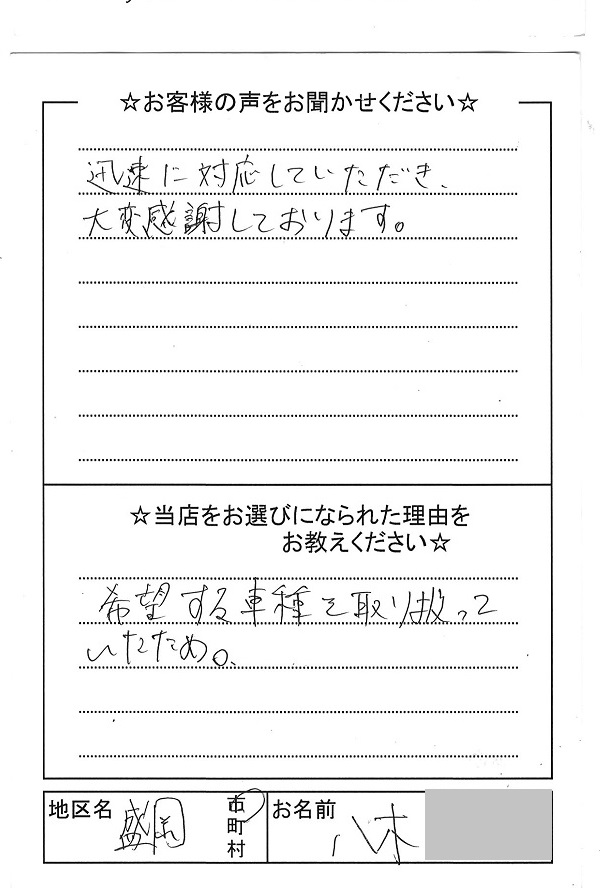 ☆お客様の声をお聞かせください☆
迅速に対応していただき、
大変感謝しております。
☆当店をお選びになられた理由を
お教えください☆
希望する車種を取り扱って
いたため。
地区名 盛岡 市町村 お名前 八木